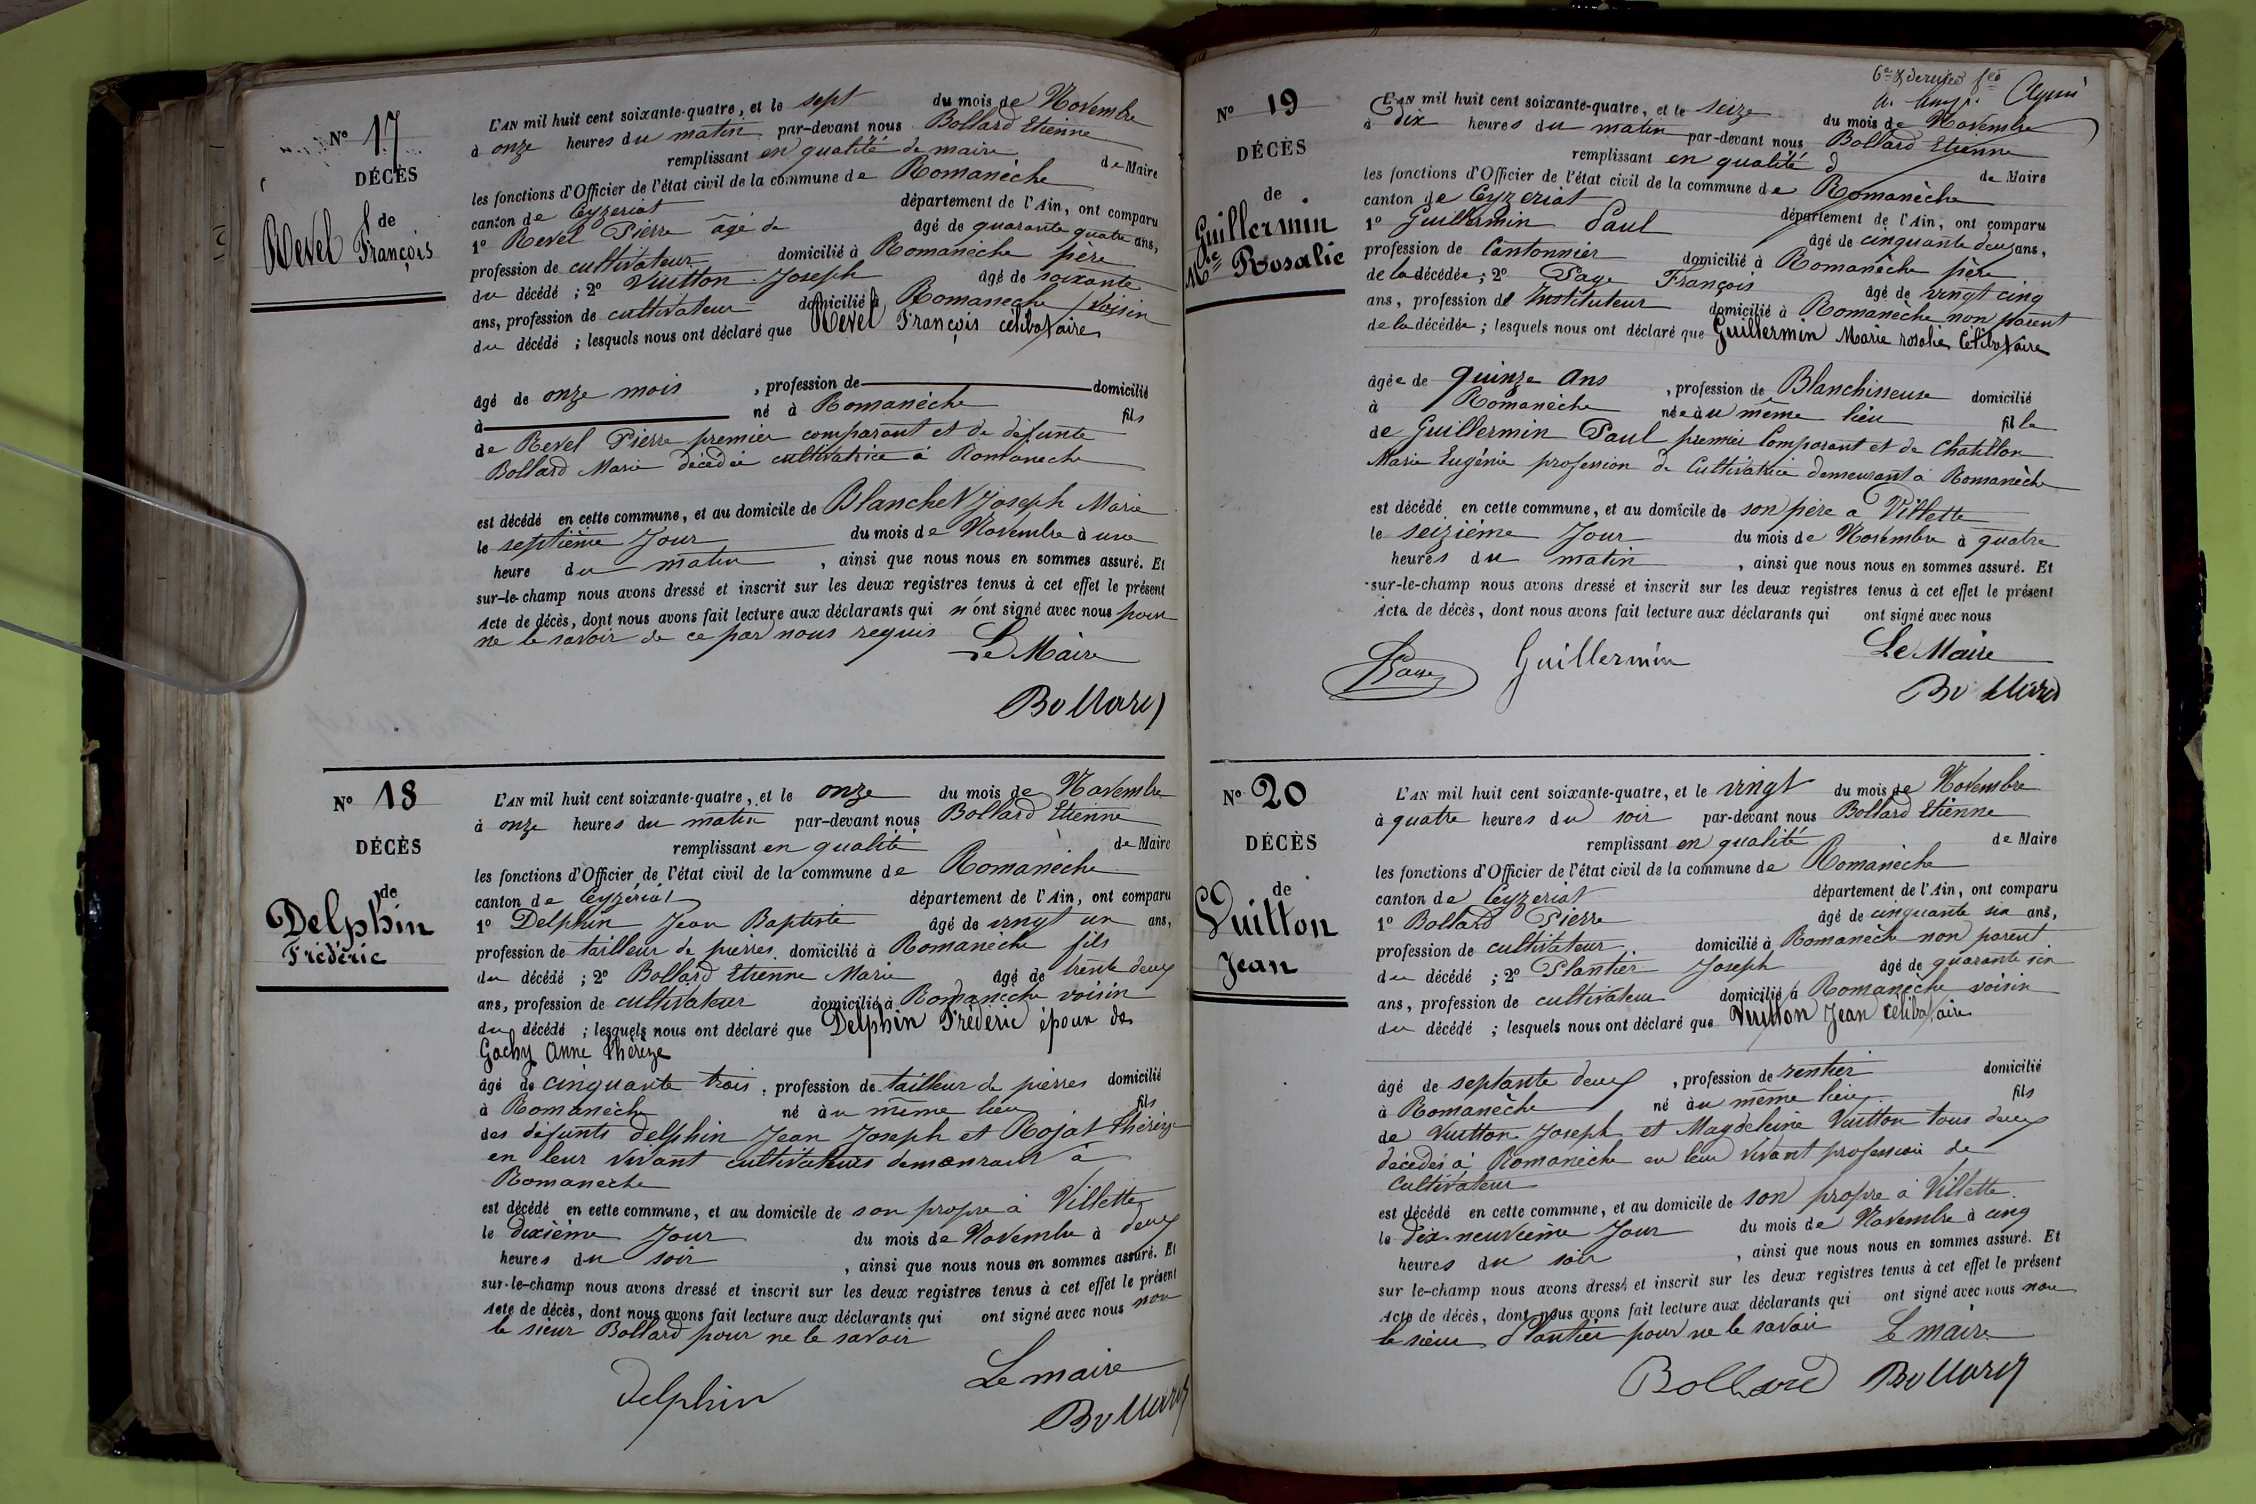 N° 17
DÉCÈS
de
Revel François
L'AN mil huit cent soixante-quatre, et le sept du mois de Novembre
à onze heures du matin par-devant nous Bollard Etienne
remplissant en qualité de maire de Maire
les fonctions d'Officier de l'état civil de la commune de Romanèche
canton de Ceyzeriat département de l'Ain, ont comparu
1° Revel Pierre âgé de âgé de quarante quatre ans,
profession de cultivateur domicilié à Romanèche père
du décédé ; 2° Vuitton Joseph âgé de soixante
ans, profession de cultivateur domicilié à Romanèche voisin
du décédé ; lesquels nous ont déclaré que Revel François célibataire
âgé de onze mois , profession de domicilié
à né à Romanèche fils
de Revel Pierre premier comparant et de défunte
Bollard Marie décédée cultivatrice à Romanèche
est décédé en cette commune, et au domicile de Blanchet Joseph Marie
le septième Jour du mois de Novembre à une
heure du matin , ainsi que nous nous en sommes assuré. Et
sur-le-champ nous avons dressé et inscrit sur les deux registres tenus à cet effet le présent
Acte de décès, dont nous avons fait lecture aux déclarants qui n'ont signé avec nous pour
ne le savoir de ce par nous requis
Le Maire
Bollard
N° 18
DÉCÈS
de
Delphin
Frédéric
L'AN mil huit cent soixante-quatre, et le onze du mois de Novembre
à onze heures du matin par-devant nous Bollard Etienne
remplissant en qualité de Maire
les fonctions d'Officier de l'état civil de la commune de Romanèche
canton de Ceyzériat département de l'Ain, ont comparu
1° Delphin Jean Baptiste âgé de vingt un ans,
profession de tailleur de pierres domicilié à Romanèche fils
du décédé ; 2° Bollard Etienne Marie âgé de trente deux
ans, profession de cultivateur domicilié à Romanèche voisin
du décédé ; lesquels nous ont déclaré que Delphin Frédéric époux de
Gachy Anne Thérèze
âgé de cinquante trois , profession de tailleur de pierres domicilié
à Romanèche né au même lieu fils
des défunts delphin Jean Joseph et Rojat Thérèze
en leur vivant cultivateurs demeurant à
Romanèche
est décédé en cette commune, et au domicile de son propre à Villette
le Dixième Jour du mois de Novembre à deux
heures du soir , ainsi que nous nous en sommes assuré. Et
sur-le-champ nous avons dressé et inscrit sur les deux registres tenus à cet effet le présent
Acte de décès, dont nous avons fait lecture aux déclarants qui ont signé avec nous non
le sieur Bollard pour ne le savoir
Le maire
Delphin
Bollard
6e & dernier
N° 19
DÉCÈS
de
Guillermin
Mie Rosalie
L'AN mil huit cent soixante-quatre, et le seize du mois de Novembre
à Dix heures du matin par-devant nous Bollard Etienne
remplissant en qualité d de Maire
les fonctions d'Officier de l'état civil de la commune de Romanèche
canton de Ceyzeriat département de l'Ain, ont comparu
1° Guillermin Paul âgé de cinquante deux ans,
profession de Cantonnier domicilié à Romanèche père
de la décédée ; 2° Page François âgé de vingt cinq
ans, profession de Instituteur domicilié à Romanèche non parent
de la décédée ; lesquels nous ont déclaré que Guillermin Marie rosalie Célibataire
âgée de quinze ans , profession de Blanchisseuse domicilié
à Romanèche née au même lieu fille
de Guillermin Paul premier Comparant et de Chatillon
Marie Eugénie profession de Cultivatrice demeurant à Romanèche
est décédé en cette commune, et au domicile de son père à Villette
le seizième Jour du mois de Novembre à quatre
heures du matin , ainsi que nous nous en sommes assuré. Et
sur-le-champ nous avons dressé et inscrit sur les deux registres tenus à cet effet le présent
Acte de décès, dont nous avons fait lecture aux déclarants qui ont signé avec nous
Le Maire
Page Guillermin
Bollard
N° 20
DÉCÈS
de
Vuitton
Jean
L'AN mil huit cent soixante-quatre, et le vingt du mois de Novembre
à quatre heures du soir par-devant nous Bollard Etienne
remplissant en qualité de Maire
les fonctions d'Officier de l'état civil de la commune de Romanèche
canton de Ceyzeriat département de l'Ain, ont comparu
1° Bollard Pierre âgé de cinquante six ans,
profession de cultivateur domicilié à Romanèche non parent
du décédé ; 2° Plantier Joseph âgé de quarante six
ans, profession de cultivateur domicilié à Romanèche voisin
du décédé ; lesquels nous ont déclaré que Vuitton Jean célibataire
âgé de septante deux , profession de rentier domicilié
à Romanèche né au même lieu fils
de Vuitton Joseph et Magdeleine Vuitton tous deux
décédés à Romanèche en leur vivant profession de
Cultivateur
est décédé en cette commune, et au domicile de son propre à Villette
le dix-neuvième Jour du mois de Novembre à cinq
heures du soir , ainsi que nous nous en sommes assuré. Et
sur le-champ nous avons dressé et inscrit sur les deux registres tenus à cet effet le présent
Acte de décès, dont nous avons fait lecture aux déclarants qui ont signé avec nous non
le sieur Plantier pour ne le savoir Le maire
Bollard Bollard